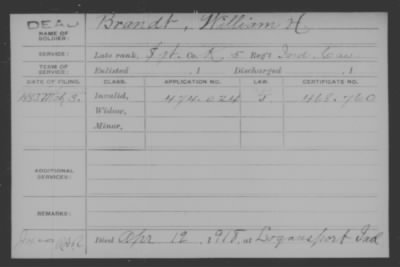 DEAD Brandt, William H
NAME OF SOLDIER:
SERVICE: Late rank, Sgt. Co. K, 5 Reg't Ind. Cav
TERM OF SERVICE: Enlisted , 1 Discharged , 1
DATE OF FILING. CLASS. APPLICATION NO. LAW. CERTIFICATE NO.
1883 Mch 3. Invalid, 474.024 468.760
Widow,
Minor,
ADDITIONAL SERVICES:
REMARKS:
Died Apr 12, 1918, at Logansport Ind